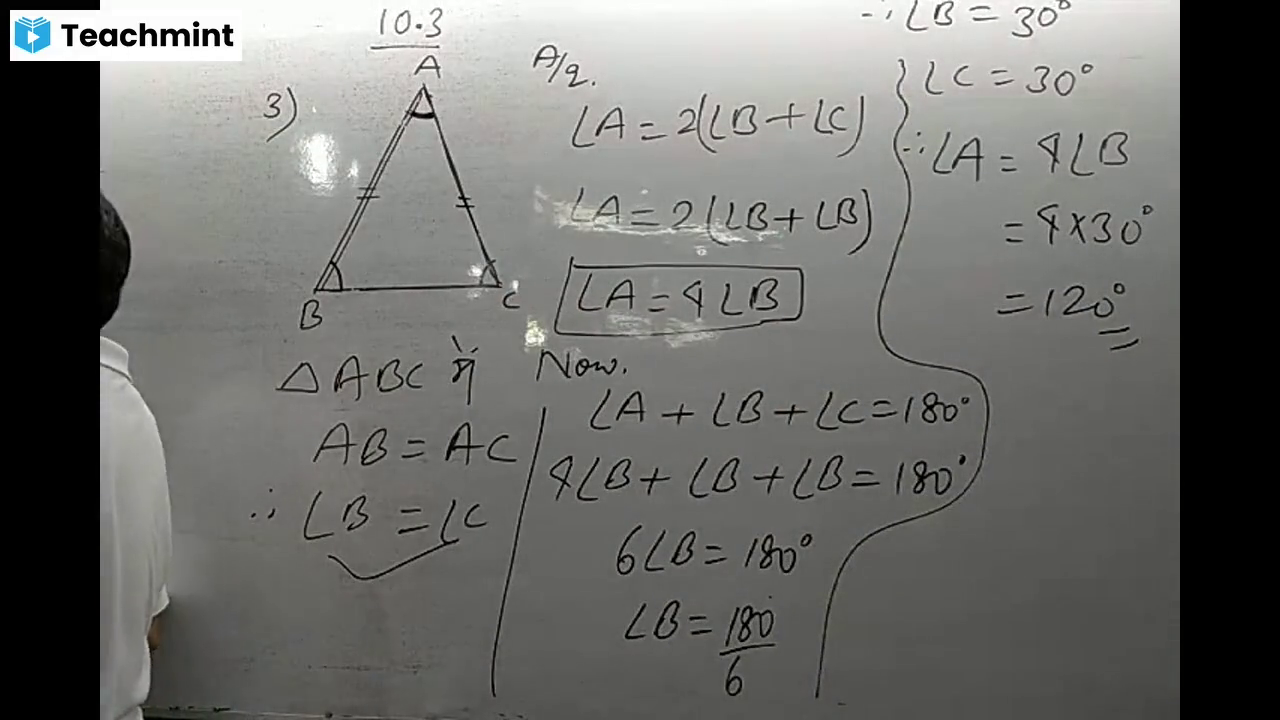 Teachmint
10.3
3)
A
B
C
△ABC में
AB = AC
∴ ∠B = ∠C
A/q.
∠A = 2(∠B + ∠C)
∠A = 2(∠B + ∠B)
∠A = 4∠B
Now.
∠A + ∠B + ∠C = 180°
4∠B + ∠B + ∠B = 180°
6∠B = 180°
∠B = 180/6
∴ ∠B = 30°
∠C = 30°
∴ ∠A = 4∠B
= 4×30°
= 120°